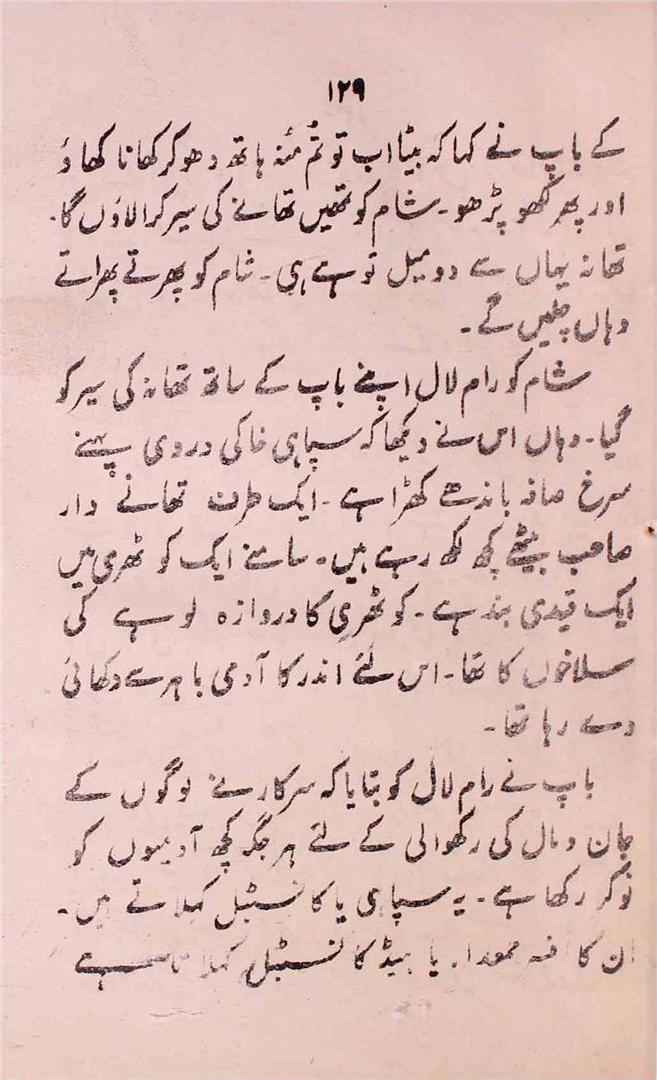 ۱۲۹
کے باپ نے کہا کہ بیٹا اب تو تُم مُنہ ہاتھ دھو کر کھانا کھاؤ
اور پھر لکھو پڑھو۔ شام کو تمھیں تھانے کی سیر کرا لاؤں گا۔
تھانہ یہاں سے دو میل تو ہے ہی۔ شام کو پھرتے پھراتے
وہاں چلیں گے۔
شام کو رام لال اپنے باپ کے ساتھ تھانہ کی سیر کو
گیا۔ وہاں اس نے دیکھا کہ سپاہی خاکی وردی پہنے
سرخ صافہ باندھے کھڑا ہے۔ ایک طرف تھانے دار
صاحب بیٹھے کچھ لکھ رہے ہیں۔ سامنے ایک کوٹھری میں
ایک قیدی بند ہے۔ کوٹھری کا دروازہ لوہے کی
سلاخوں کا تھا۔ اس لئے اندر کا آدمی باہر سے دکھائی
دے رہا تھا۔
باپ نے رام لال کو بتایا کہ سرکار نے لوگوں کے
جان و مال کی رکھوالی کے لئے ہر جگہ کچھ آدمیوں کو
نوکر رکھا ہے۔ یہ سپاہی یا کانسٹبل کہلاتے ہیں۔
ان کا افسر جمعدار یا ہیڈ کانسٹبل کہلاتا ہے